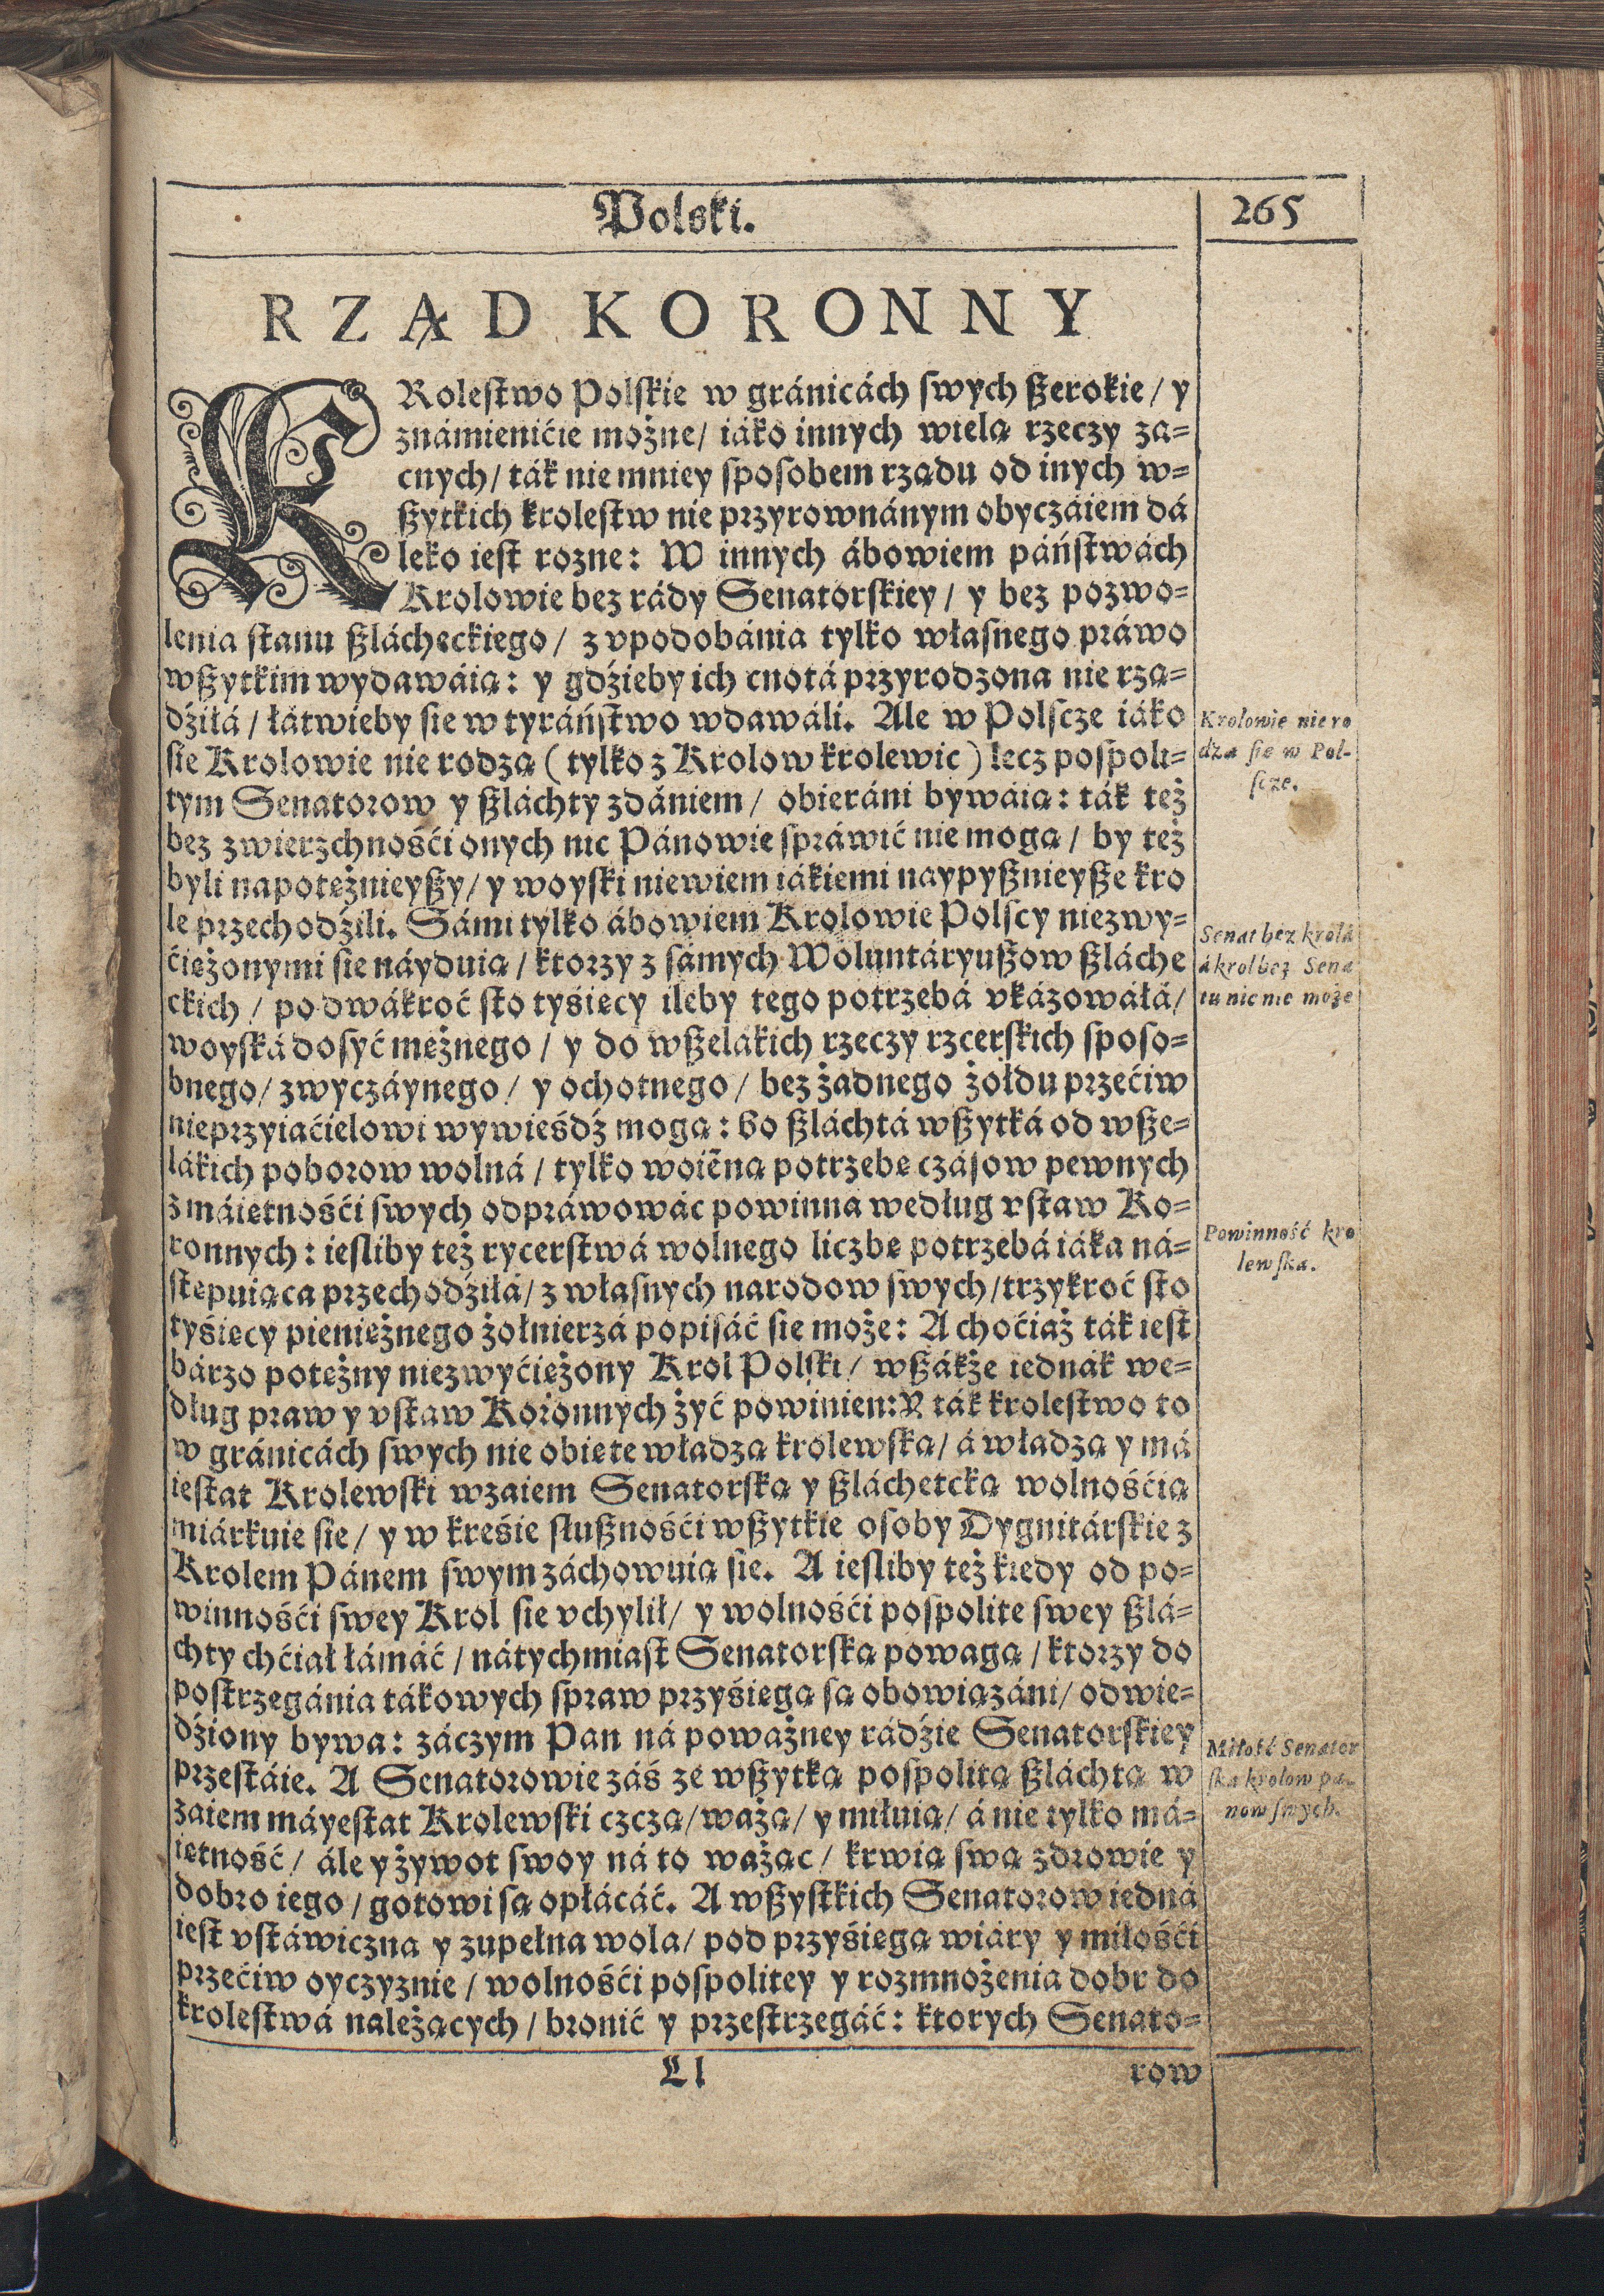 Polski.
265
RZĄD KORONNY
KRolestwo Polskie w gránicách swych ßerokie / y
známienićie możne / iáko innych wielą rzeczy za-
cnych / ták nie mniey sposobem rządu od inych w-
ßytkich krolestw nie przyrownánym obyczáiem dá
leko iest rozne: W innych ábowiem páństwách
Krolowie bez rády Senatorskiey / y bez pozwo-
lenia stanu ßlácheckiego / z vpodobánia tylko własnego práwo
wßytkim wydawáią: y gdźieby ich cnotá przyrodzona nie rzą-
dźiłá / łátwieby się w tyráństwo wdawáli. Ale w Polscze iáko
się Krolowie nie rodzą ( tylko z Krolow krolewic ) lecz pospoli-
tym Senatorow y ßláchty zdániem / obieráni bywáią: ták też
bez zwierzchnośći onych nic Pánowie spráwić nie mogą / by też
byli napotężnieyßy / y woyski niewiem iákiemi naypyßnieyße kro
le przechodźili. Sámi tylko ábowiem Krolowie Polscy niezwy-
ćiężonymi się náyduią / ktorzy z sámych Woluntáryußow ßláche
ckich / po dwákroć sto tyśięcy ileby tego potrzebá vkázowáłá /
woyská dosyć mężnego / y do wßelákich rzeczy rzcerskich sposo-
bnego / zwyczáynego / y ochotnego / bez żadnego żołdu przećiw
nieprzyiaćielowi wywieśdź mogą: bo ßláchtá wßytká od wße-
lákich poborow wolná / tylko woiẽną potrzebę czásow pewnych
z máiętnośći swych odpráwowác powinna według vstaw Ko-
ronnych: iesliby też rycerstwá wolnego liczbę potrzebá iáka ná-
stępuiąca przechodźiłá / z własnych narodow swych / trzykroć sto
tyśięcy pieniężnego żołnierzá popisáć się może: A choćiaż ták iest
bárzo potężny niezwyćiężony Krol Polski / wßákże iednák we-
dług praw y vstaw Koronnych żyć powinien: Y ták krolestwo to
w gránicách swych nie obięte władzą krolewską / á władzą y má
iestat Krolewski wzaiem Senatorską y ßláchetcką wolnośćią
miárkuie się / y w kreśie słußnośći wßytkie osoby Dygnitárskie z
Krolem Pánem swym záchowuią się. A iesliby też kiedy od po-
winnośći swey Krol się vchylił / y wolnośći pospolite swey ßlá-
chty chćiał łámáć / nátychmiast Senatorską powagą / ktorzy do
postrzegánia tákowych spraw przyśięgą są obowiązáni / odwie-
dźiony bywa: záczym Pan ná poważney rádźie Senatorskiey
przestáie. A Senatorowie záś ze wßytką pospolitą ßláchtą w
zaiem máyestat Krolewski czczą / ważą / y miłuią / á nie tylko má-
iętność / ále y żywot swoy ná to ważąc / krwią swą zdrowie y
dobro iego / gotowi są opłácáć. A wßystkich Senatorow iedná
iest vstáwiczna y zupełna wola / pod przyśięgą wiáry y miłośći
przećiw oyczyznie / wolnośći pospolitey y rozmnożenia dobr do
krolestwá należących / bronić y przestrzegáć: ktorych Senato-
Ll
row
Krolowie nie ro
dzą się w Pol-
scze.
Senat bez krolá
á krol bez Sena
tu nic nie może
Powinność kro
lewska.
Miłość Senator
ska krolow pa-
now swych.